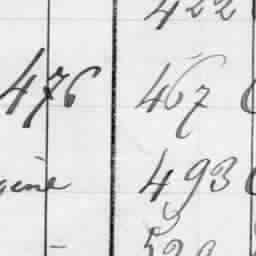 422
476 467
gène 493